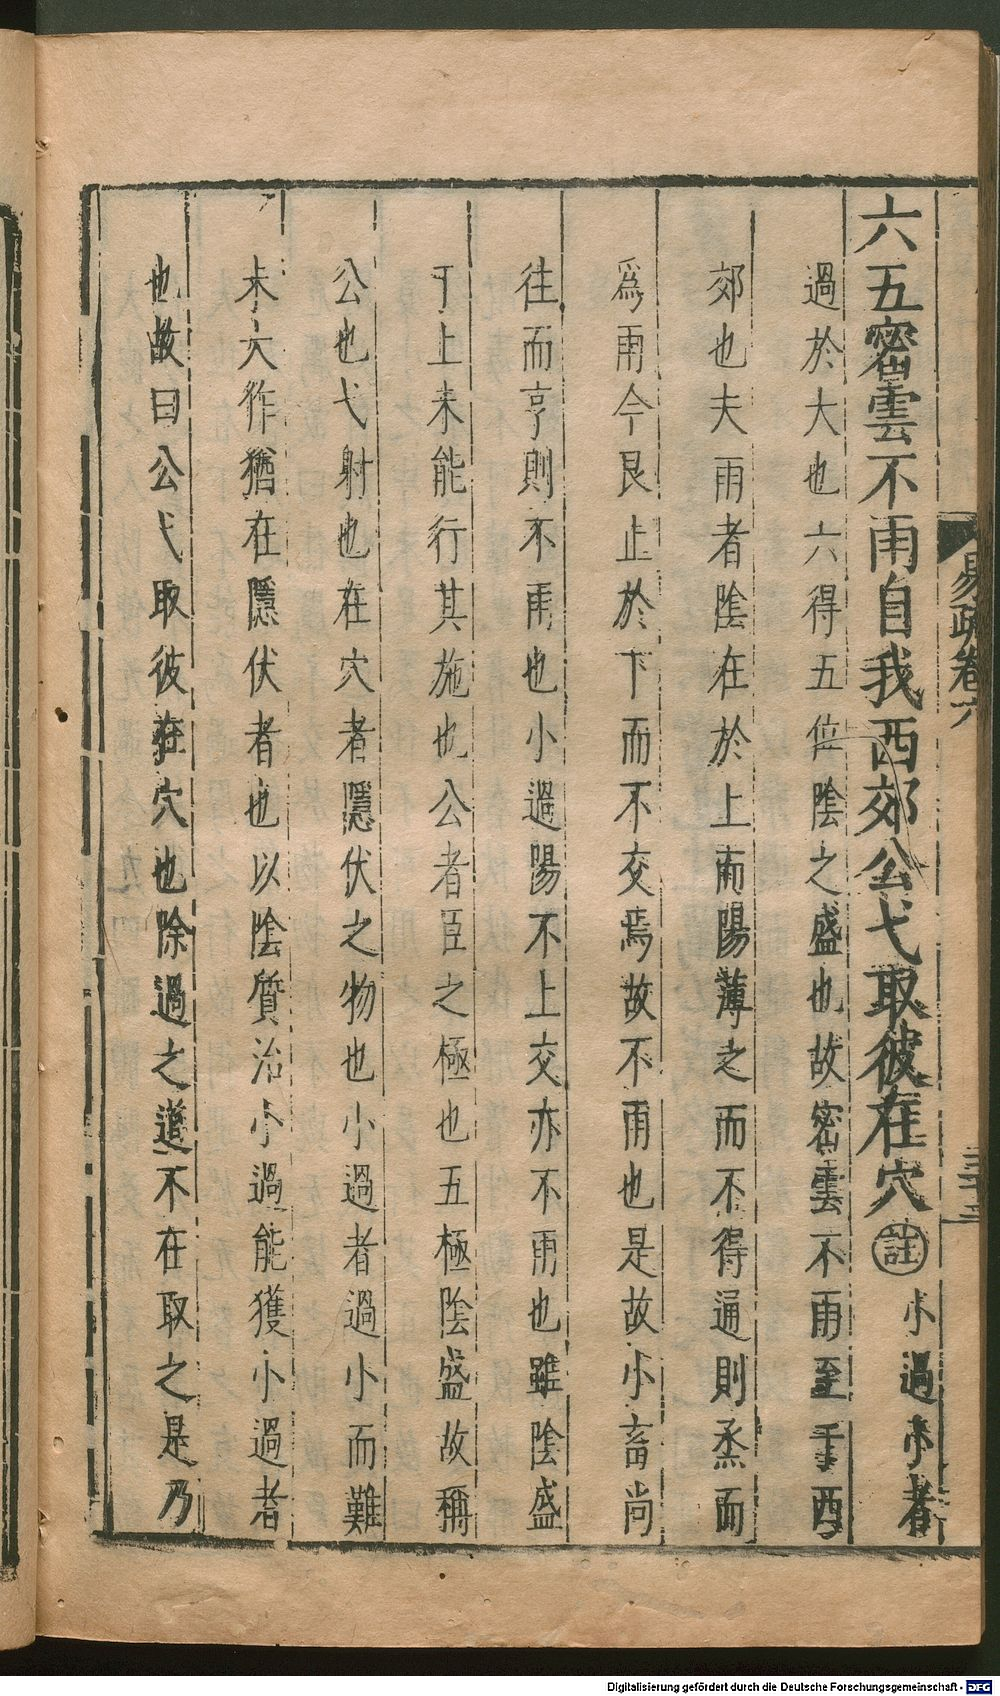 六五密雲不雨自我西郊公弋取彼在穴㊟小過小者
過於大也六得五位陰之盛也故密雲不雨至于西
郊也夫雨者陰在於上而陽薄之而不得通則烝而
爲雨今艮止於下而不交焉故不雨也是故小畜尚
往而亨則不雨也小過陽不上交亦不雨也雖陰盛
于上未能行其施也公者臣之極也五極陰盛故稱
公也弋射也在穴者隱伏之物也小過者過小而難
未大作猶在隱伏者也以陰質治小過能獲小過者
也故曰公弋取彼在穴也除過之道不在取之是乃
易疏卷六
Digitalisierung gefördert durch die Deutsche Forschungsgemeinschaft - DFG